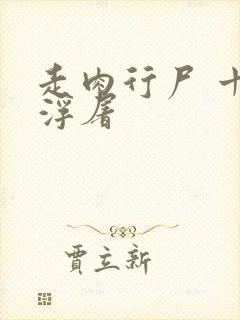 走肉行尸 十
浮屠
贾立新